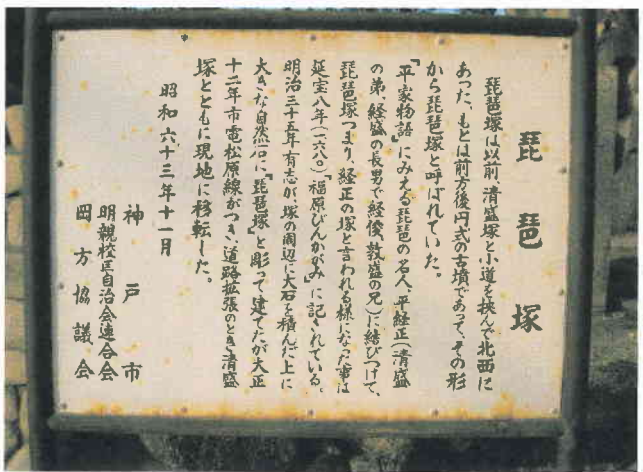 琵琶塚
琵琶塚は以前、清盛塚と小道を挟んで北西に
あった、もとは前方後円式の古墳であって、その形
から琵琶塚と呼ばれていた。
『平家物語』にみえる琵琶の名人、平経正(清盛
の弟、経盛の長男で経俊、敦盛の兄)に結びつけて、
琵琶塚つまり、経正の塚と言われる様になった事は
延宝八年(一六八〇)『福原びんかがみ』に記されている。
明治三十五年有志が、塚の周辺に大石を積んだ上に
大きな自然石に『琵琶塚』と彫って建てたが大正
十二年市電松原線がつき、道路拡張のとき清盛
塚とともに現地に移転した。
昭和六十三年十一月
神戸市
明親校区自治会連合会
岡方協議会